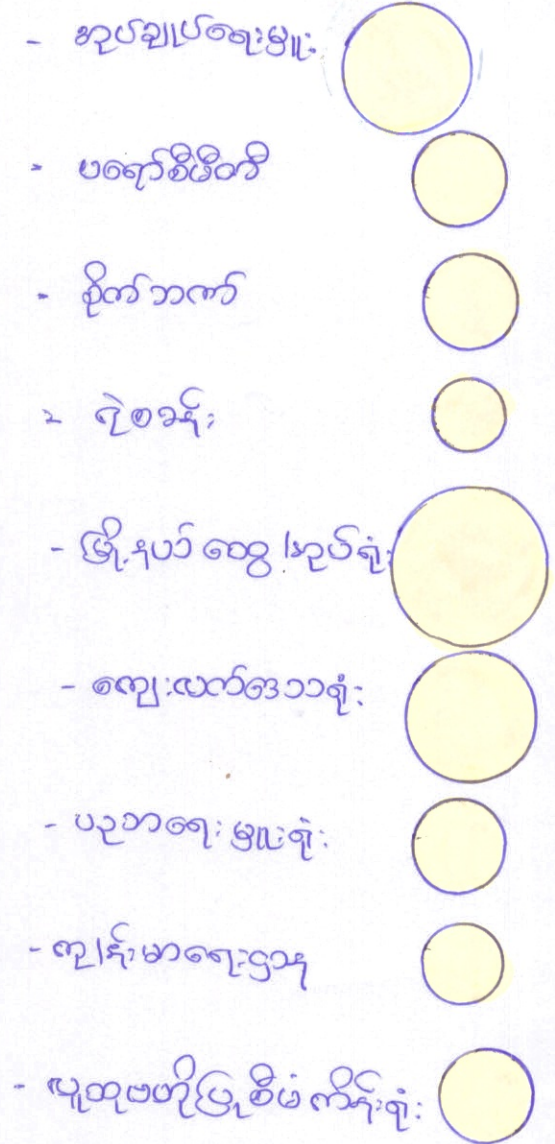 - အုပ်ချုပ်ရေးမှူး
- ပရော်စီမီတီ
- စိုက်ဘဏ်
- ရဲစခန်း
- မြို့နယ် ထွေ/အုပ်ရုံး
- ကျေးလက်ဒေသရုံး
- ပညာရေးမှူးရုံး
- ကျန်းမာရေးဌာန
- လူထုဗဟိုပြုစီမံကိန်းရုံး